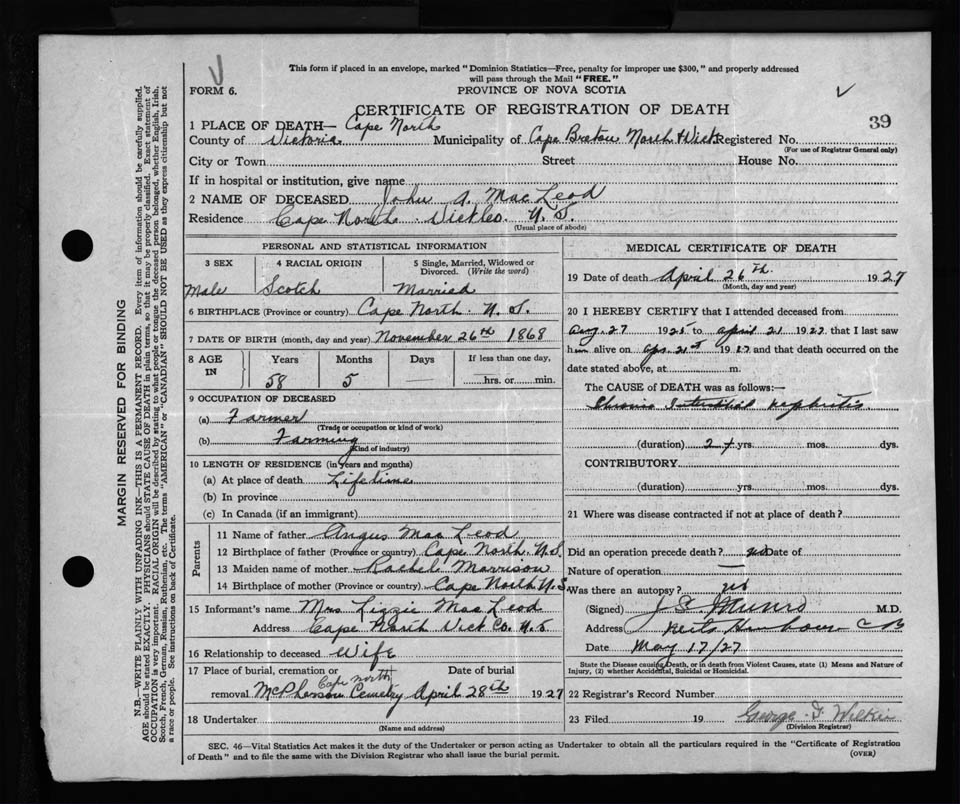 This form if placed in an envelope, marked "Dominion Statistics—Free, penalty for improper use $300," and properly addressed
will pass through the Mail "FREE."
FORM 6.
PROVINCE OF NOVA SCOTIA
CERTIFICATE OF REGISTRATION OF DEATH
39
1 PLACE OF DEATH— Cape North
County of Victoria Municipality of Cape Breton North & Vict Registered No.
(For use of Registrar General only)
City or Town Street House No.
If in hospital or institution, give name
2 NAME OF DECEASED John A. MacLeod
Residence Cape North Vict Co. N. S.
(Usual place of abode)
PERSONAL AND STATISTICAL INFORMATION
3 SEX 4 RACIAL ORIGIN 5 Single, Married, Widowed or
Divorced. (Write the word)
Male Scotch Married
6 BIRTHPLACE (Province or country) Cape North. N. S.
7 DATE OF BIRTH (month, day and year) November 26th 1868
8 AGE IN Years Months Days If less than one day,
58 5 — hrs. or min.
9 OCCUPATION OF DECEASED
(a) Farmer
(Trade or occupation or kind of work)
(b) Farming
(Kind of industry)
10 LENGTH OF RESIDENCE (in years and months)
(a) At place of death Lifetime
(b) In province
(c) In Canada (if an immigrant)
Parents
11 Name of father Angus Mac Leod
12 Birthplace of father (Province or country) Cape North. N.S.
13 Maiden name of mother Rachel Morrison
14 Birthplace of mother (Province or country) Cape North N.S.
15 Informant's name Mrs Lizzie Mac Leod
Address Cape North Vict Co. N. S
16 Relationship to deceased Wife
17 Place of burial, cremation or Date of burial
Cape North
removal McPherson Cemetry April 28th 1927
18 Undertaker
(Name and address)
MEDICAL CERTIFICATE OF DEATH
19 Date of death April 26th. 1927
(Month, day and year)
20 I HEREBY CERTIFY that I attended deceased from
Aug. 27 1925 to april 21 1927 that I last saw
him alive on apr. 21st 1927 and that death occurred on the
date stated above, at m.
The CAUSE of DEATH was as follows:—
Chronic Interstitial Nephritis.
(duration) 2 + yrs. mos. dys.
CONTRIBUTORY
(duration) yrs. mos. dys.
21 Where was disease contracted if not at place of death?
Did an operation precede death? no Date of
Nature of operation —
Was there an autopsy? no
(Signed) Munro M.D.
Address Neils Harbour C B
Date May 17/27
State the Disease causing Death, or in death from Violent Causes, state (1) Means and Nature of
Injury, (2) whether Accidental, Suicidal or Homicidal.
22 Registrar's Record Number
23 Filed 19 George F. Wilkie
(Division Registrar)
SEC. 46—Vital Statistics Act makes it the duty of the Undertaker or person acting as Undertaker to obtain all the particulars required in the "Certificate of Registration
of Death" and to file the same with the Division Registrar who shall issue the burial permit.
(OVER)
MARGIN RESERVED FOR BINDING
N.B.—WRITE PLAINLY WITH UNFADING INK—THIS IS A PERMANENT RECORD. Every item of information should be carefully supplied.
AGE should be stated EXACTLY. PHYSICIANS should STATE CAUSE OF DEATH in plain terms, so that it may be properly classified. Exact statement of
OCCUPATION is very important. RACIAL ORIGIN will be described by stating to what people or tongue the deceased person belonged, whether English, Irish,
Scotch, French, German, Russian, Ruthenian, etc. The terms "AMERICAN" or "CANADIAN" SHOULD NOT BE USED as they express citizenship but not
a race or people. See instructions on back of Certificate.